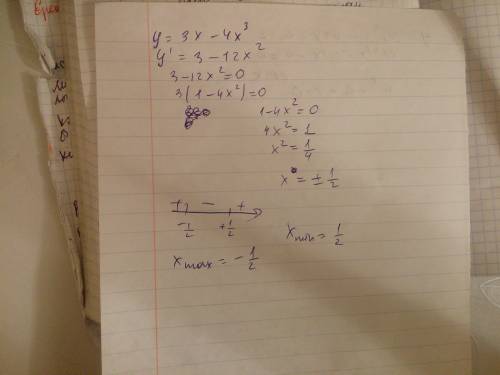 y = 3x - 4x³
y' = 3 - 12x²
3 - 12x² = 0
3(1 - 4x²) = 0
1 - 4x² = 0
4x² = 1
x² = 1/4
x = ± 1/2
+ - +
-1/2 +1/2
x min = 1/2
x max = - 1/2